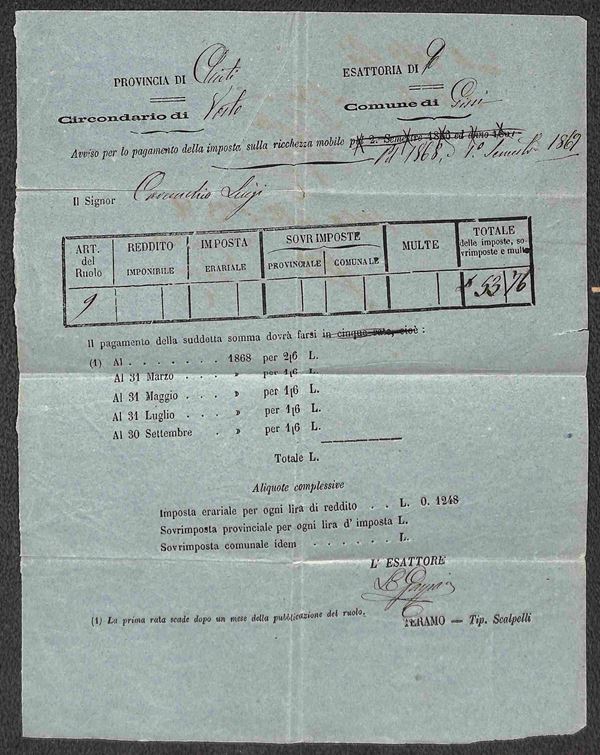 PROVINCIA DI Chieti ESATTORIA DI
Circondario di Vasto Comune di Gissi
Avviso per lo pagamento della imposta sulla ricchezza mobile pel 2. Semestre 1860 ed Anno 1867
1868, 1° Semestre 1869
Il Signor Luigi
ART. del Ruolo REDDITO IMPONIBILE IMPOSTA ERARIALE SOVRIMPOSTE PROVINCIALE COMUNALE MULTE TOTALE delle imposte, sovrimposte e multe
9 53 76
Il pagamento della suddetta somma dovrà farsi in cinque rate, cioè :
(1) Al . . . . . . . . 1868 per 2|6 L.
Al 31 Marzo . . . . » per 1|6 L.
Al 31 Maggio . . . . » per 1|6 L.
Al 31 Luglio . . . . » per 1|6 L.
Al 30 Settembre . » per 1|6 L.
Totale L.
Aliquote complessive
Imposta erariale per ogni lira di reddito . . L. 0. 1248
Sovrimposta provinciale per ogni lira d' imposta L.
Sovrimposta comunale idem . . . . . . L.
L' ESATTORE
(1) La prima rata scade dopo un mese della pubblicazione del ruolo.
TERAMO — Tip. Scalpelli